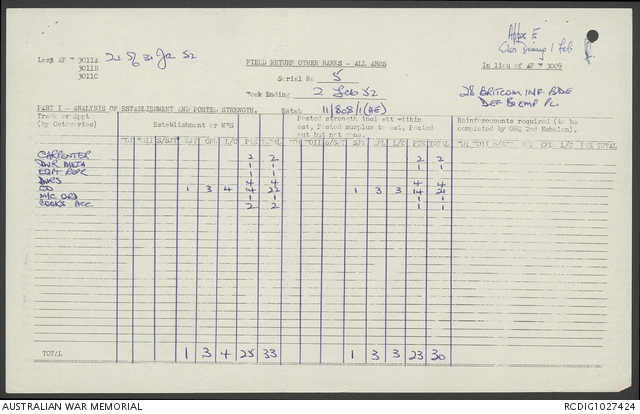 Appx E
War Diary 1 Feb
Last AF W 3011A 31 Ja 52
3011B
3011C
FIELD RETURN OTHER RANKS - ALL ARMS
In lieu of AF W 3009
Serial No 5
Week Ending 2 Feb 52
28 BRITCOM INF BDE
DEF & EMP PL
PART I - ANALYSIS OF ESTABLISHMENT AND POSTED STRENGTH.
Estab 11/808/1(AE)
Trade or Appt (by Categories)
Establishment or WES
Posted strength incl att within est, Posted surplus to est, Posted out but not cong.
Reinforcements required (to be completed by GHQ 2nd Echelon).
S/SGT SJT CPL L/C PTE TOTAL S/SGT SJT CPL L/C PTE TOTAL S/SGT SJT CPL L/C PTE TOTAL
CARPENTER 2 2 2 2
DVR MECH 1 1 1 1
EQPT REPR 1 1 1 1
DVRS 4 4 4 4
GD 1 3 4 14 22 1 3 3 14 21
M/C ORD 1 1 1 1
COOKS ACC 2 2
TOTAL 1 3 4 25 33 1 3 3 23 30
AUSTRALIAN WAR MEMORIAL
RCDIG1027424